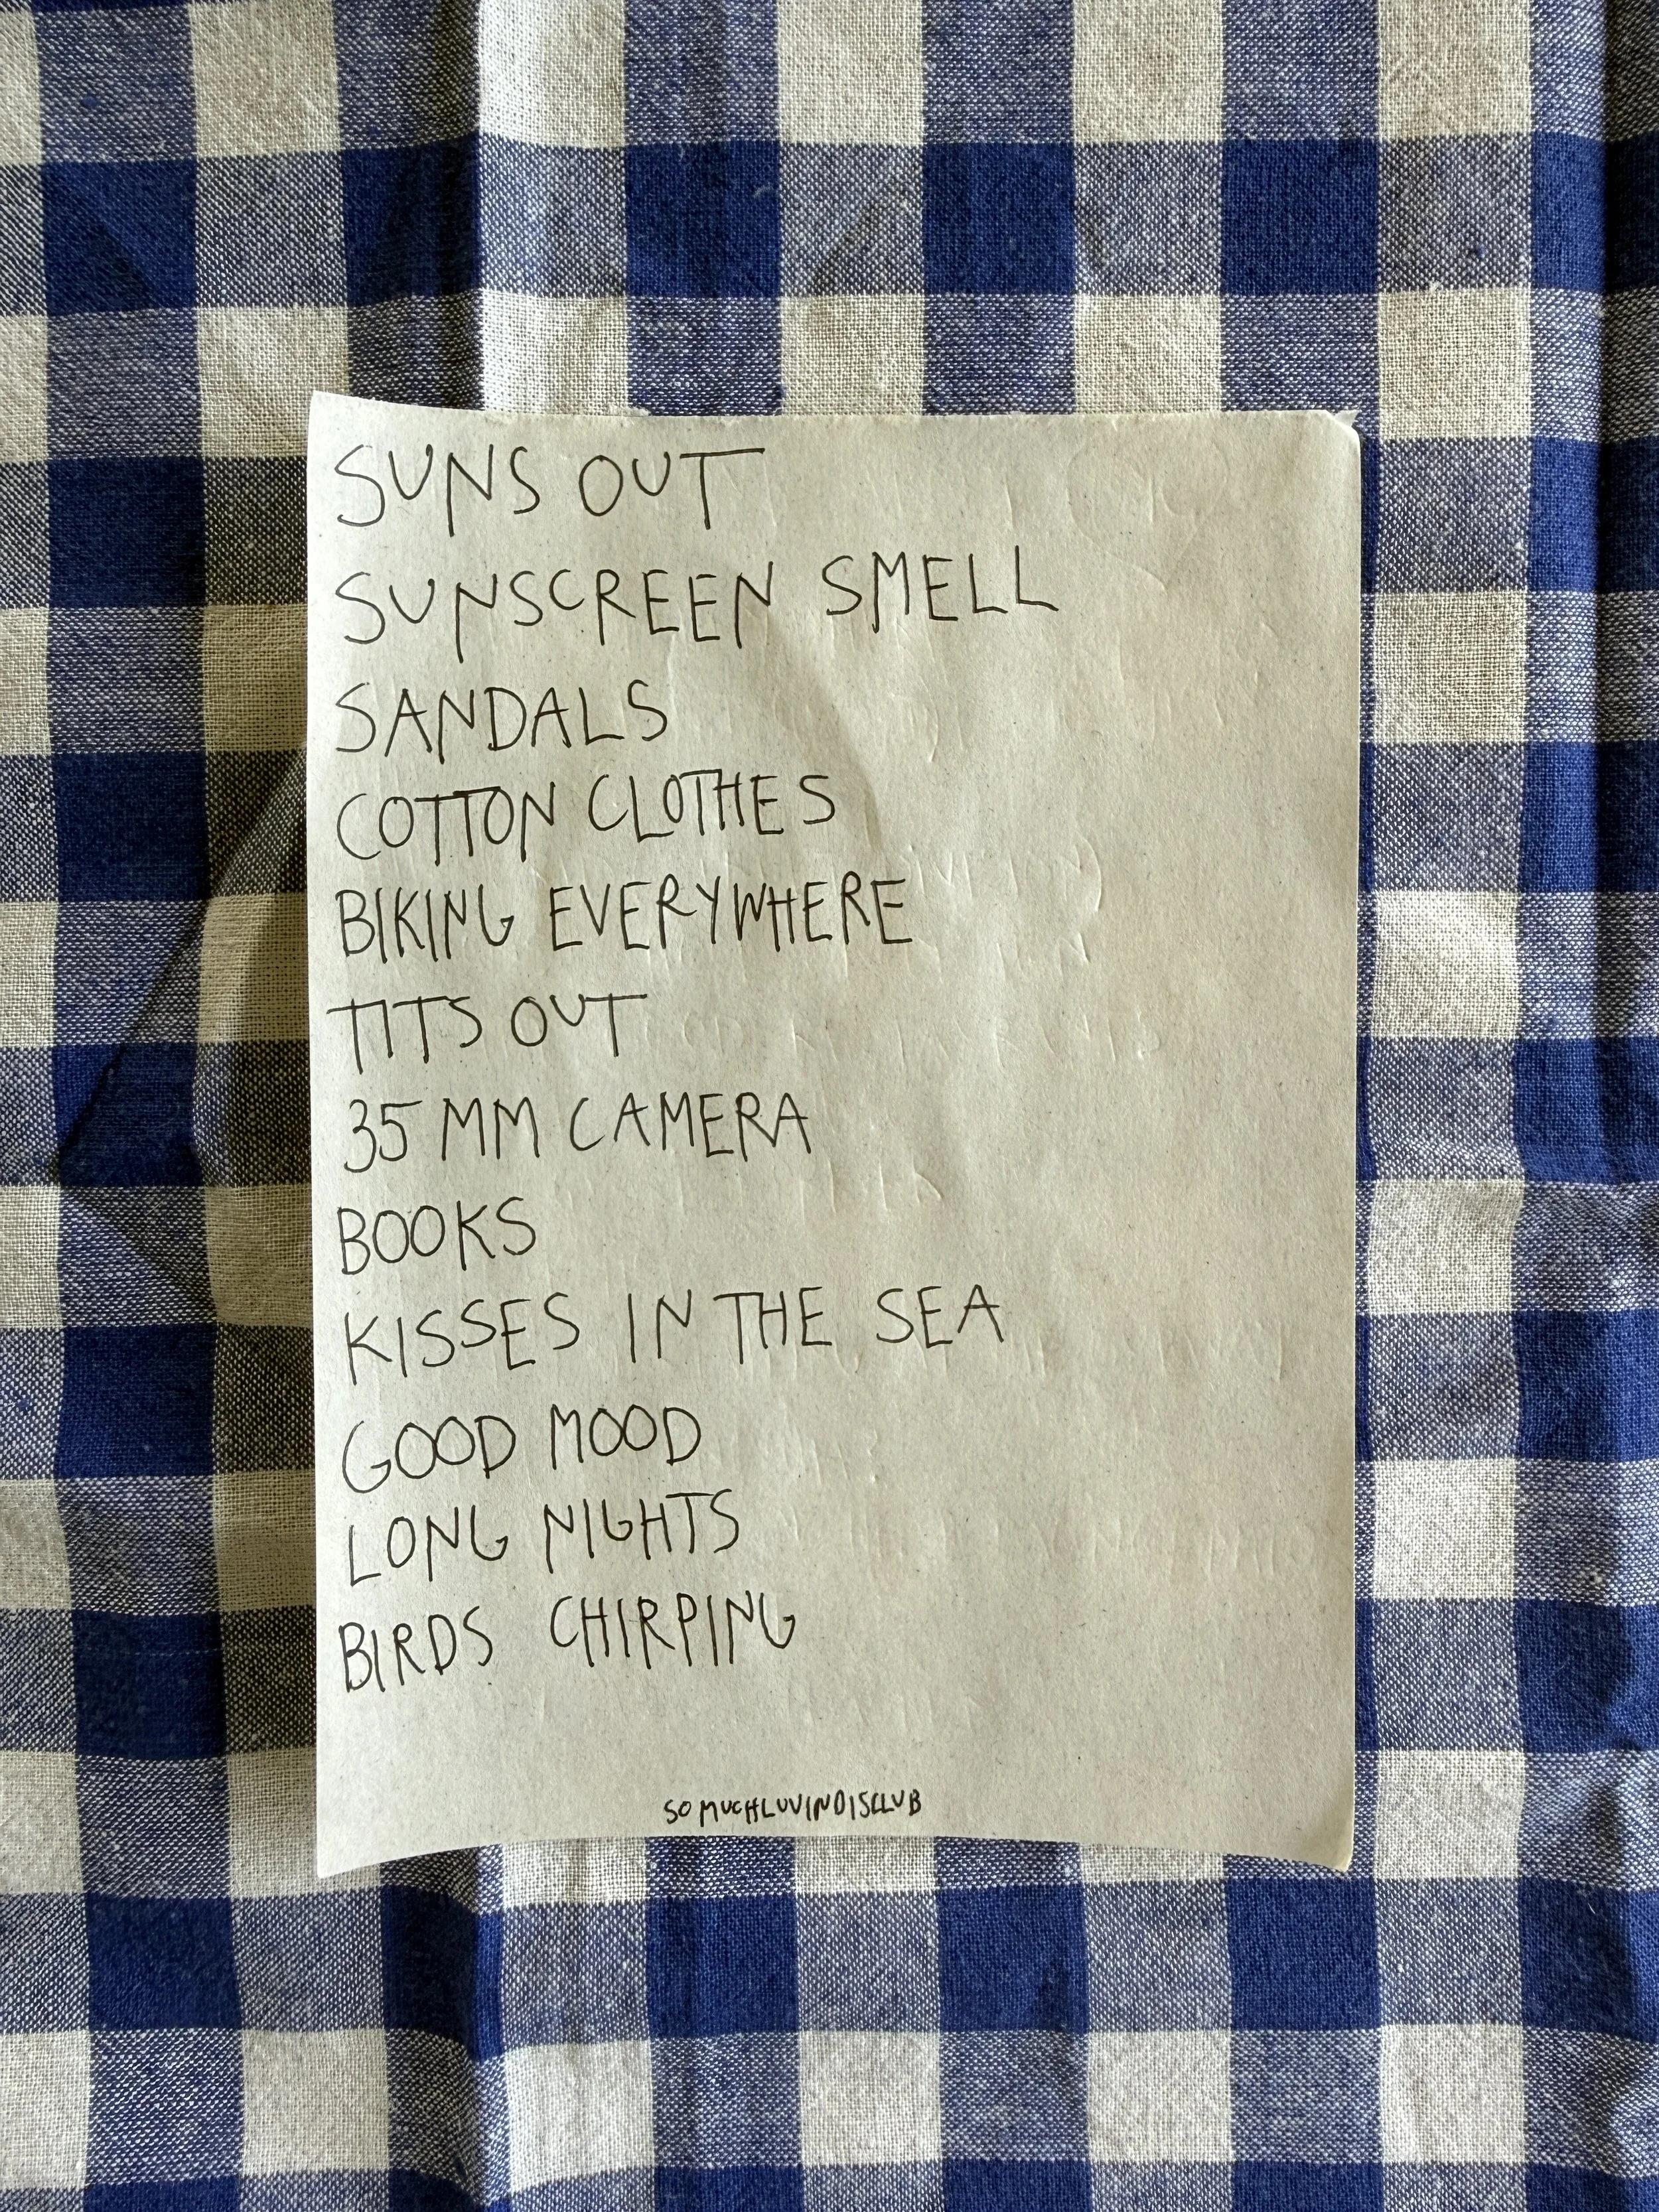 SUNS OUT
SUNSCREEN SMELL
SANDALS
COTTON CLOTHES
BIKING EVERYWHERE
TITS OUT
35 MM CAMERA
BOOKS
KISSES IN THE SEA
GOOD MOOD
LONG NIGHTS
BIRDS CHIRPING
SOMUCHLUVINDISCLUB